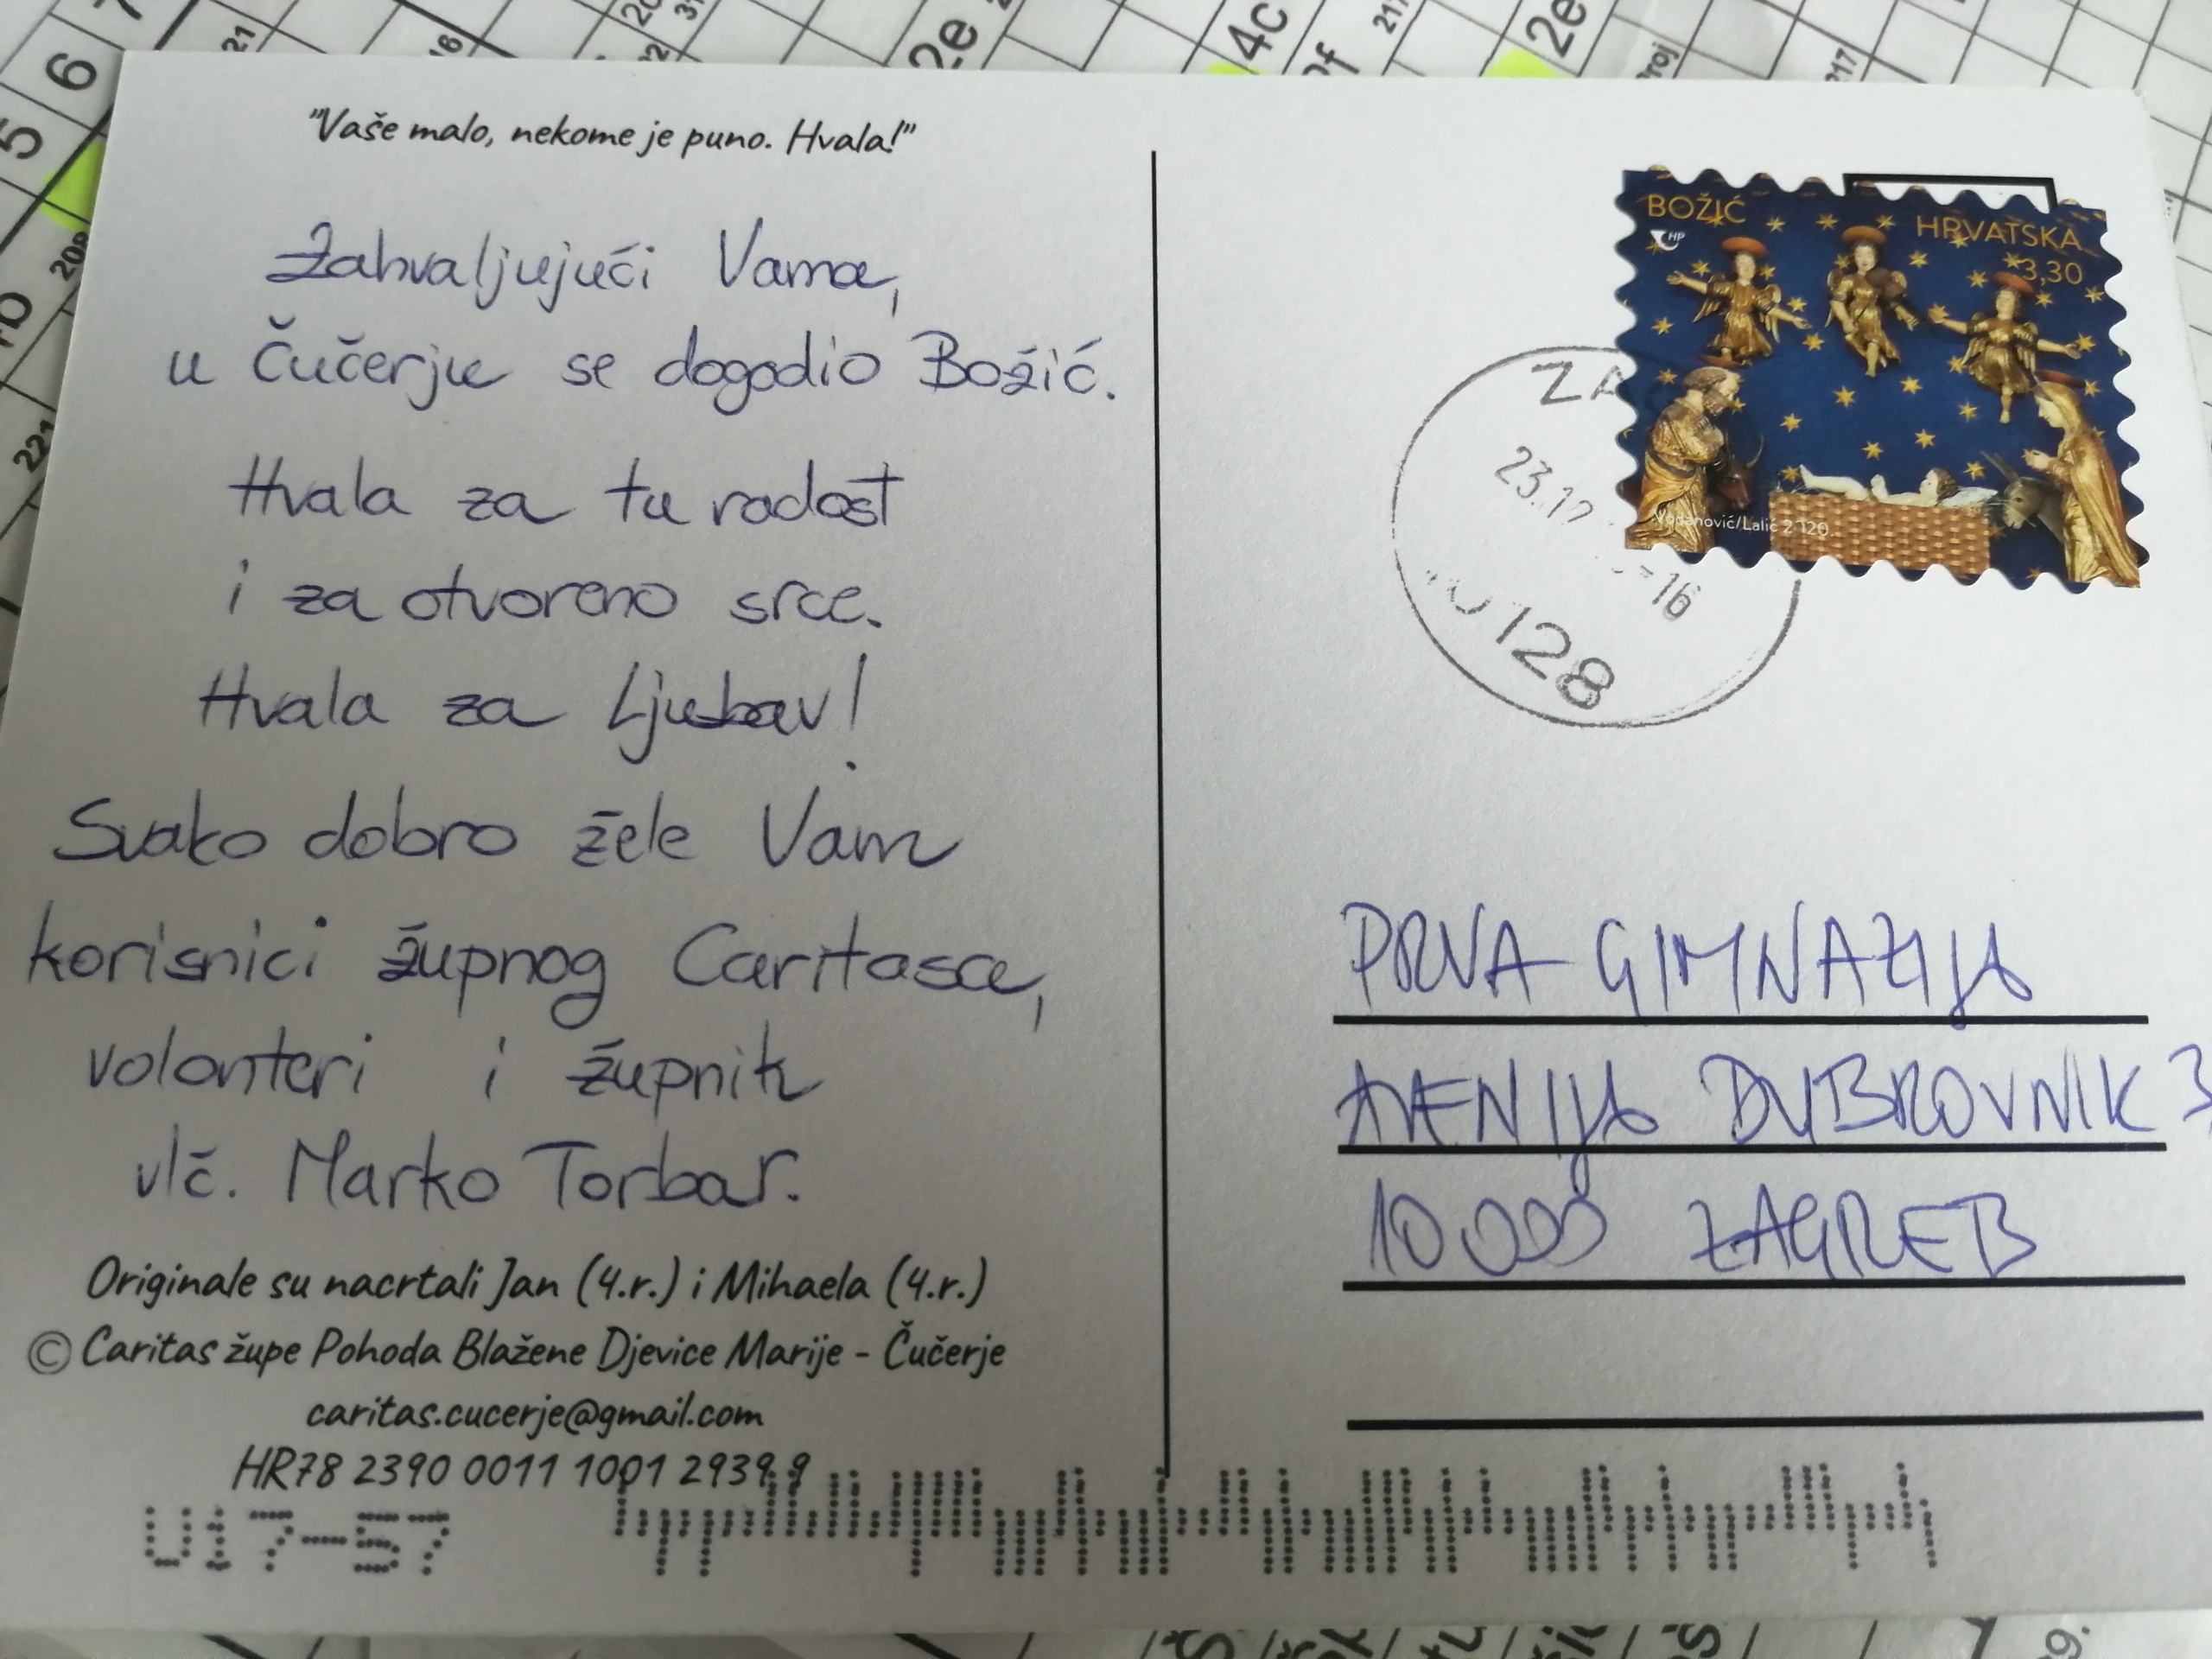 "Vaše malo, nekome je puno. Hvala!"
Zahvaljujući Vama,
u Čučerju se dogodio Božić.
Hvala za tu radost
i za otvoreno srce.
Hvala za Ljubav!
Svako dobro žele Vam
korisnici župnog Caritasa,
volonteri i župnik
vlč. Marko Torbar.
Originale su nacrtali Jan (4.r.) i Mihaela (4.r.)
© Caritas župe Pohoda Blažene Djevice Marije - Čučerje
caritas.cucerje@gmail.com
HR78 2390 0011 1001 2939 9
U17-57
BOŽIĆ
HP
HRVATSKA
3,30
Vodanović/Lalić
ZA
23.12
-16
128
PRVA GIMNAZIJA
AVENIJA DUBROVNIK
10000 ZAGREB
5
6
7
208
221
21
16
2e
4c
217
2e
217